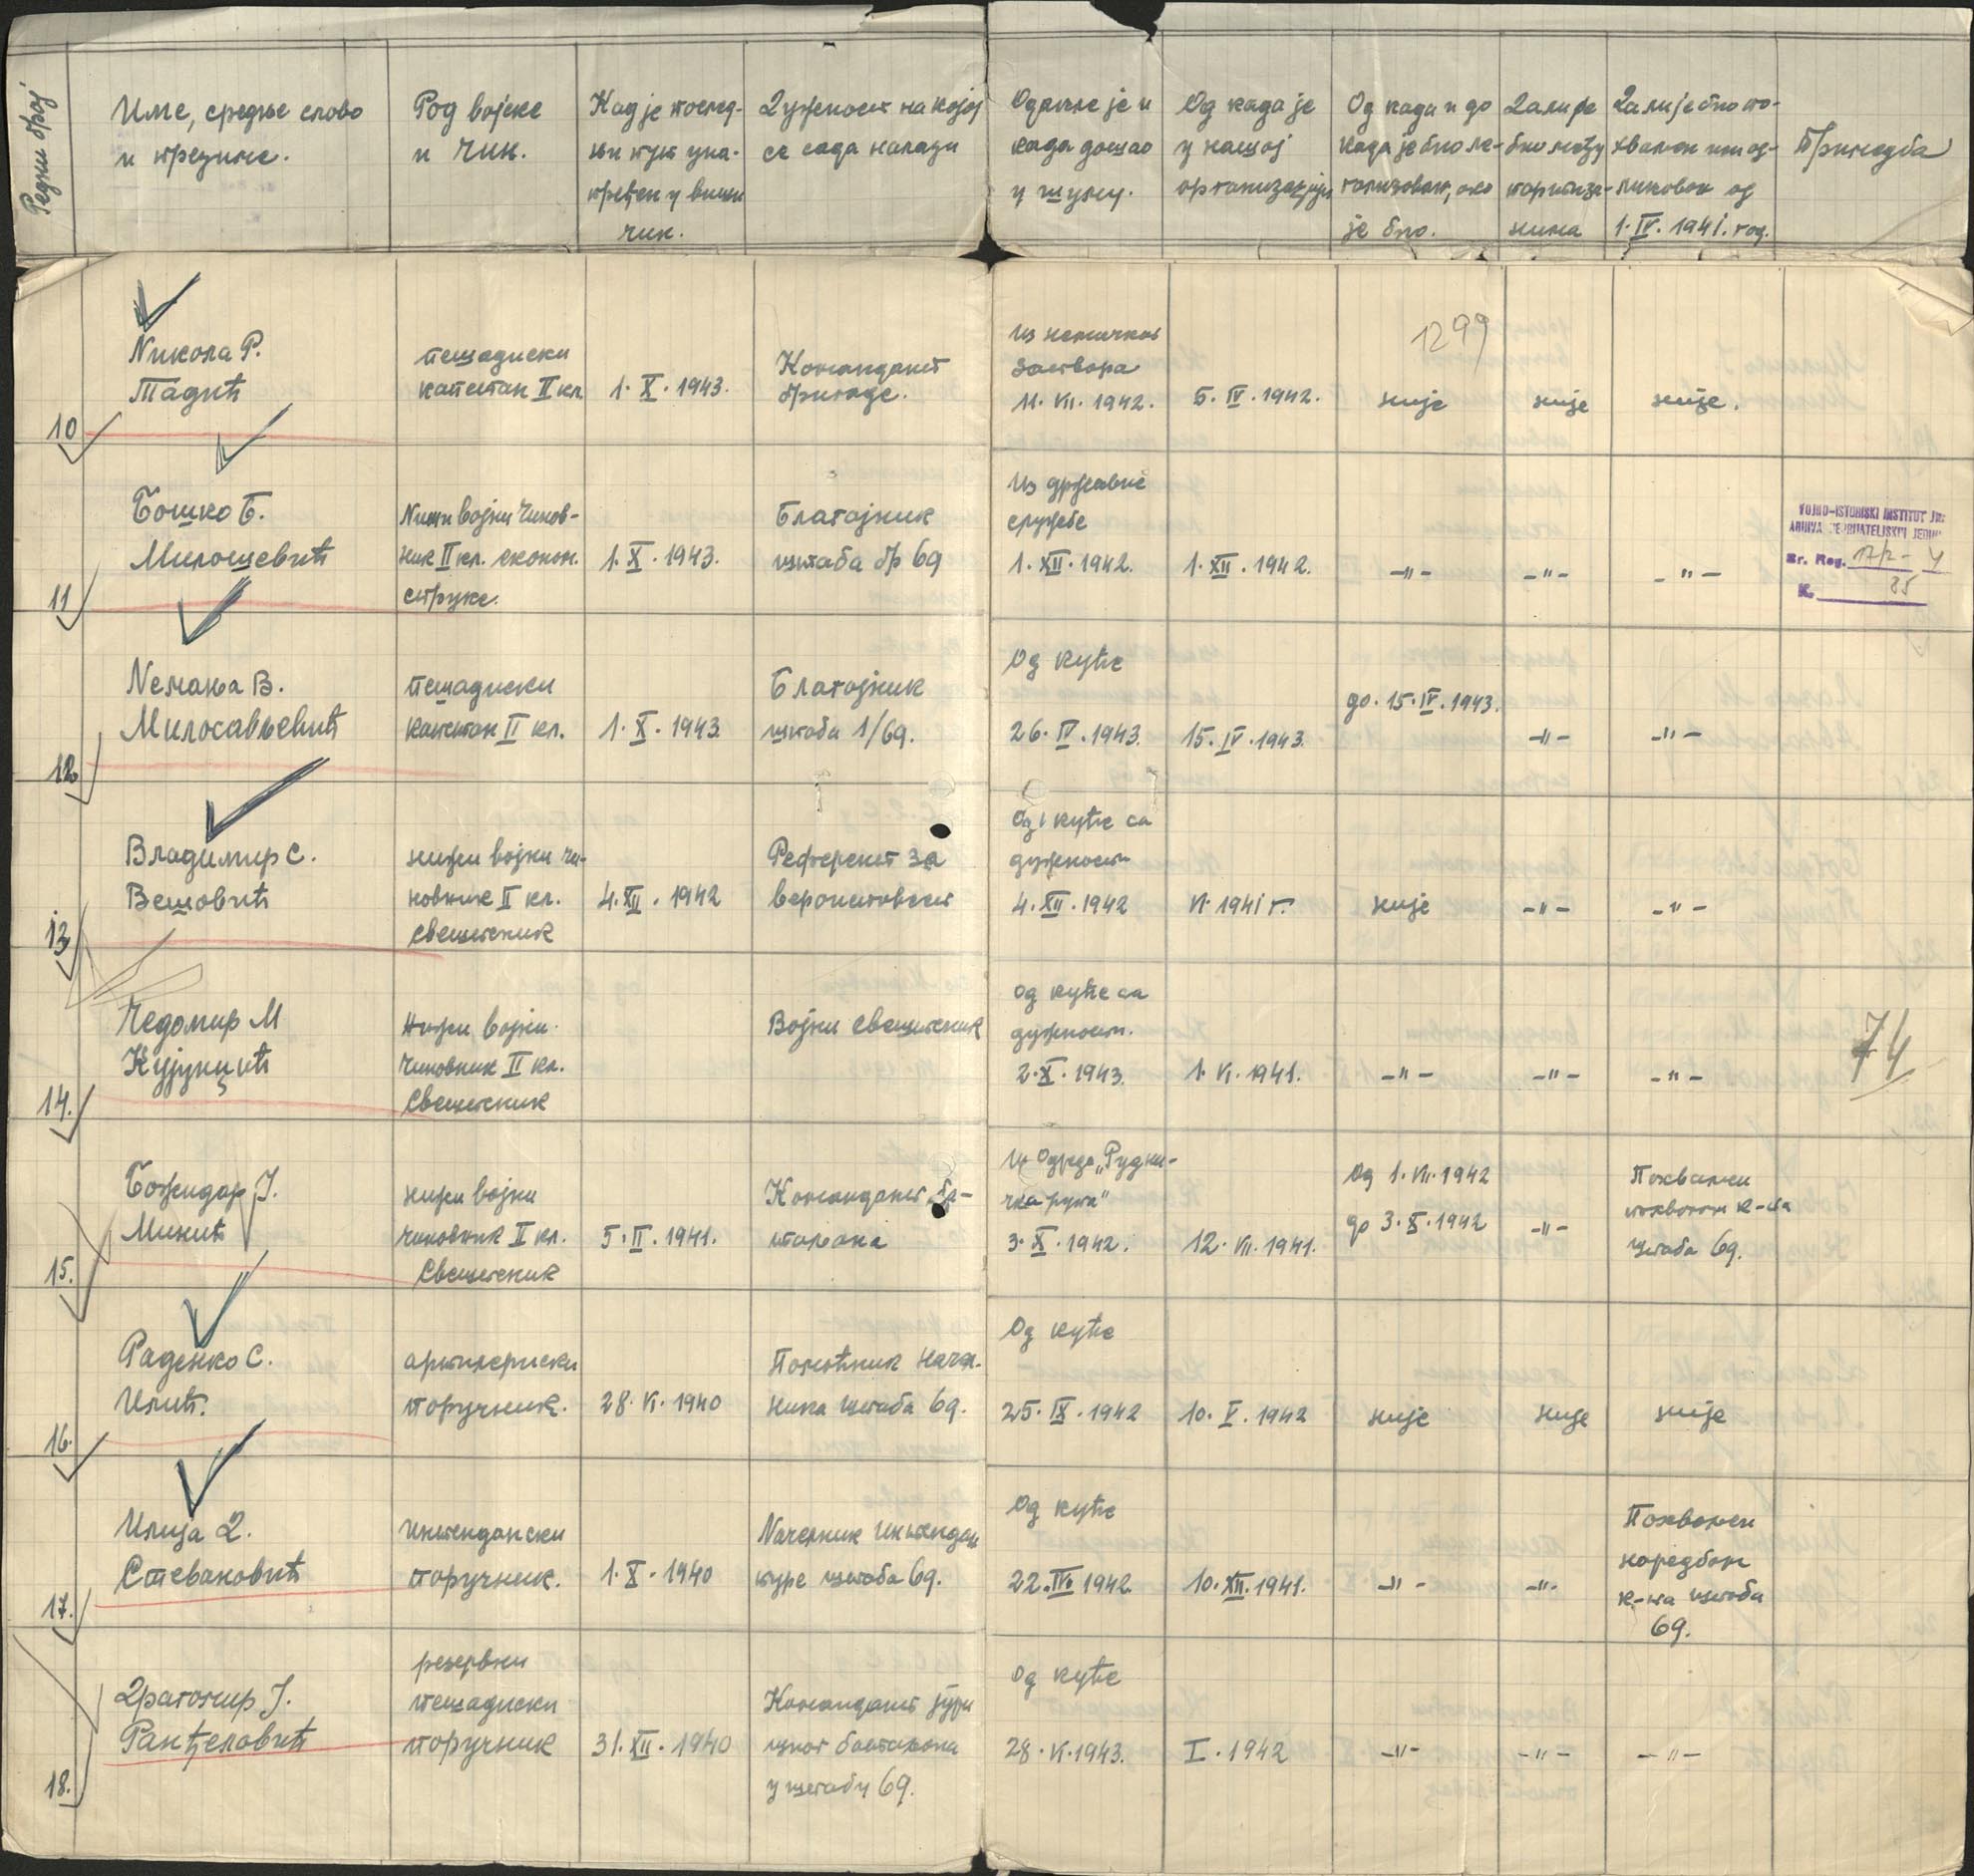 Редни број
Име, средње слово
и презиме.
Род војске
и чин.
Кад је послед-
њи пут уна-
пређен у виши
чин.
Дужност на којој
се сада налази
Одакле је и
када дошао
у шуму.
Од када је
у нашој
организацији
Од када и до
када је био ле-
гализован, ако
је био.
Да ли је
био међу
партиза-
нима
Да ли је био по-
хваљен или од-
ликован од
1. IV. 1941. год.
Примедба
1299
10
Никола Р.
Тадић
пешадиски
капетан II кл.
1. X. 1943.
Командант
бригаде.
Из немачког
затвора
11. VII. 1942.
5. IV. 1942.
није
није
није.
11
Бошко Б.
Милошевић
Нижи војни чинов-
ник II кл. економ.
струке.
1. X. 1943.
Благајник
штаба бр 69
Из државне
службе
1. XII. 1942.
1. XII. 1942.
-"-
-"-
-"-
VOJNO-ISTORISKI INSTITUT
ARHIVA NEPRIJATELJSKIH JEDIN
Br. Reg. 17/2-4
K. 85
12
Немања В.
Милосављевић
пешадиски
капетан II кл.
1. X. 1943
Благајник
штаба 1/69.
Од куће
26. IV. 1943.
15. IV. 1943.
до 15. IV. 1943.
-"-
-"-
13
Владимир С.
Вешовић
нижи војни чи-
новник II кл.
свештеник
4. XII. 1942
Референт за
веронаставу
Од куће са
дужности
4. XII. 1942
VI. 1941 г.
није
-"-
-"-
74
14.
Чедомир М
Кујунџић
Нижи војни
чиновник II кл.
свештеник
Војни свештеник
Од куће са
дужности.
2. X. 1943.
1. VI. 1941.
-"-
-"-
-"-
15.
Божидар Ј.
Минић
нижи војни
чиновник II кл.
свештеник
5. II. 1941.
Командант ба-
таљона
Из Одреда „Рудни-
чка рупа"
3. X. 1942.
12. VII. 1941.
Од 1. VII. 1942
до 3. X. 1942
-"-
Похваљен
похвалом к-та
штаба 69.
16.
Раденко С.
Илић.
артилериски
поручник.
28. VI. 1940
Помоћник начел-
ника штаба 69.
Од куће
25. IX. 1942
10. V. 1942
није
није
није
17.
Илија Д.
Стевановић
Интендански
поручник.
1. X. 1940
Начелник интендан
туре штаба 69.
Од куће
22. IV. 1942.
10. XII. 1941.
-"-
-"-
Похваљен
наредбом
к-та штаба
69.
18.
Драгомир Ј.
Ранђеловић
резервни
пешадиски
поручник
31. XII. 1940
Командант јури
шног батаљона
у штабу 69.
Од куће
28. VI. 1943.
I. 1942
-"-
-"-
-"-